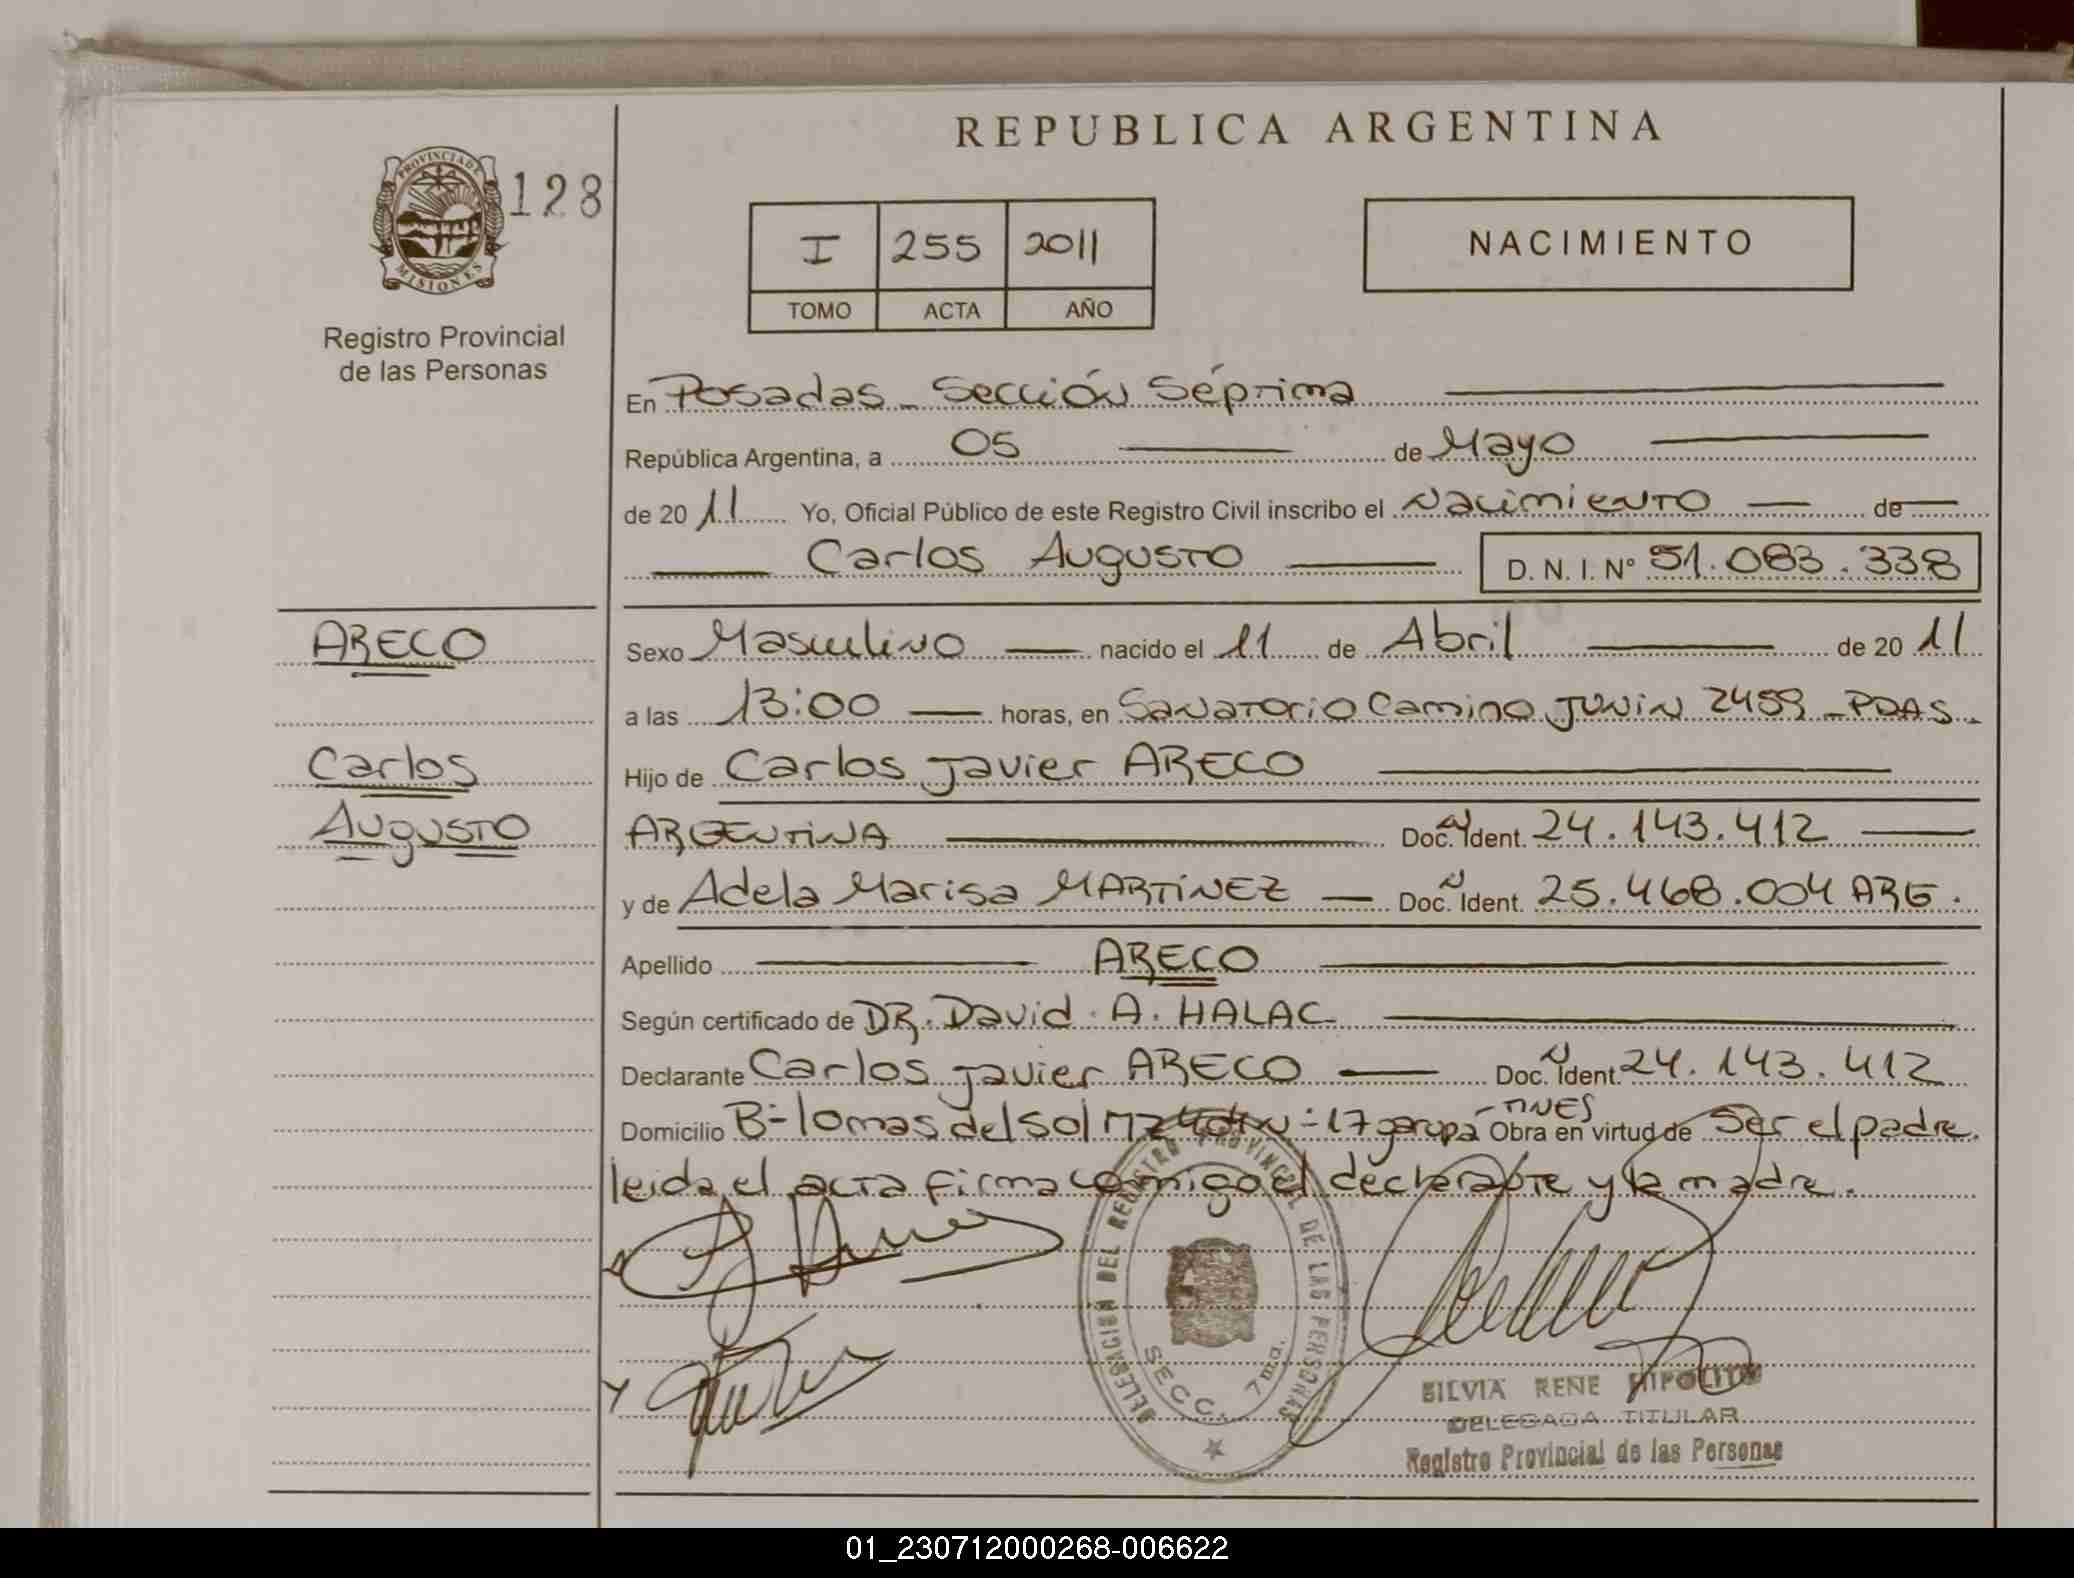 REPUBLICA ARGENTINA
PROVINCIA DE
MISIONES
128
Registro Provincial
de las Personas
I 255 2011
TOMO ACTA AÑO
NACIMIENTO
En Posadas - Sección Séptima
República Argentina, a 05 de Mayo
de 2011 Yo, Oficial Público de este Registro Civil inscribo el Nacimiento de
Carlos Augusto D. N. I. N° 51.083.338
ARECO
Carlos
Augusto
Sexo Masculino nacido el 11 de Abril de 2011
a las 13:00 horas, en Sanatorio Camino Junin 2459 - PDAS -
Hijo de Carlos Javier ARECO
ARGENTINA Doc. N Ident. 24.143.412
y de Adela Marisa MARTÍNEZ Doc. N Ident. 25.468.004 ARG.
Apellido ARECO
Según certificado de DR. David A. HALAC
Declarante Carlos Javier ARECO Doc. N Ident. 24.143.412
Domicilio B= lomas del sol MZ 17 garupá - MNES Obra en virtud de ser el padre.
leida el acta firma comigo el declarante y la madre.
DELEGACION DEL REGISTRO PROVINCIAL DE LAS PERSONAS
SECC. 7ma.
SILVIA RENE HIPOLITO
DELEGADA TITULAR
Registro Provincial de las Personas
01_230712000268-006622